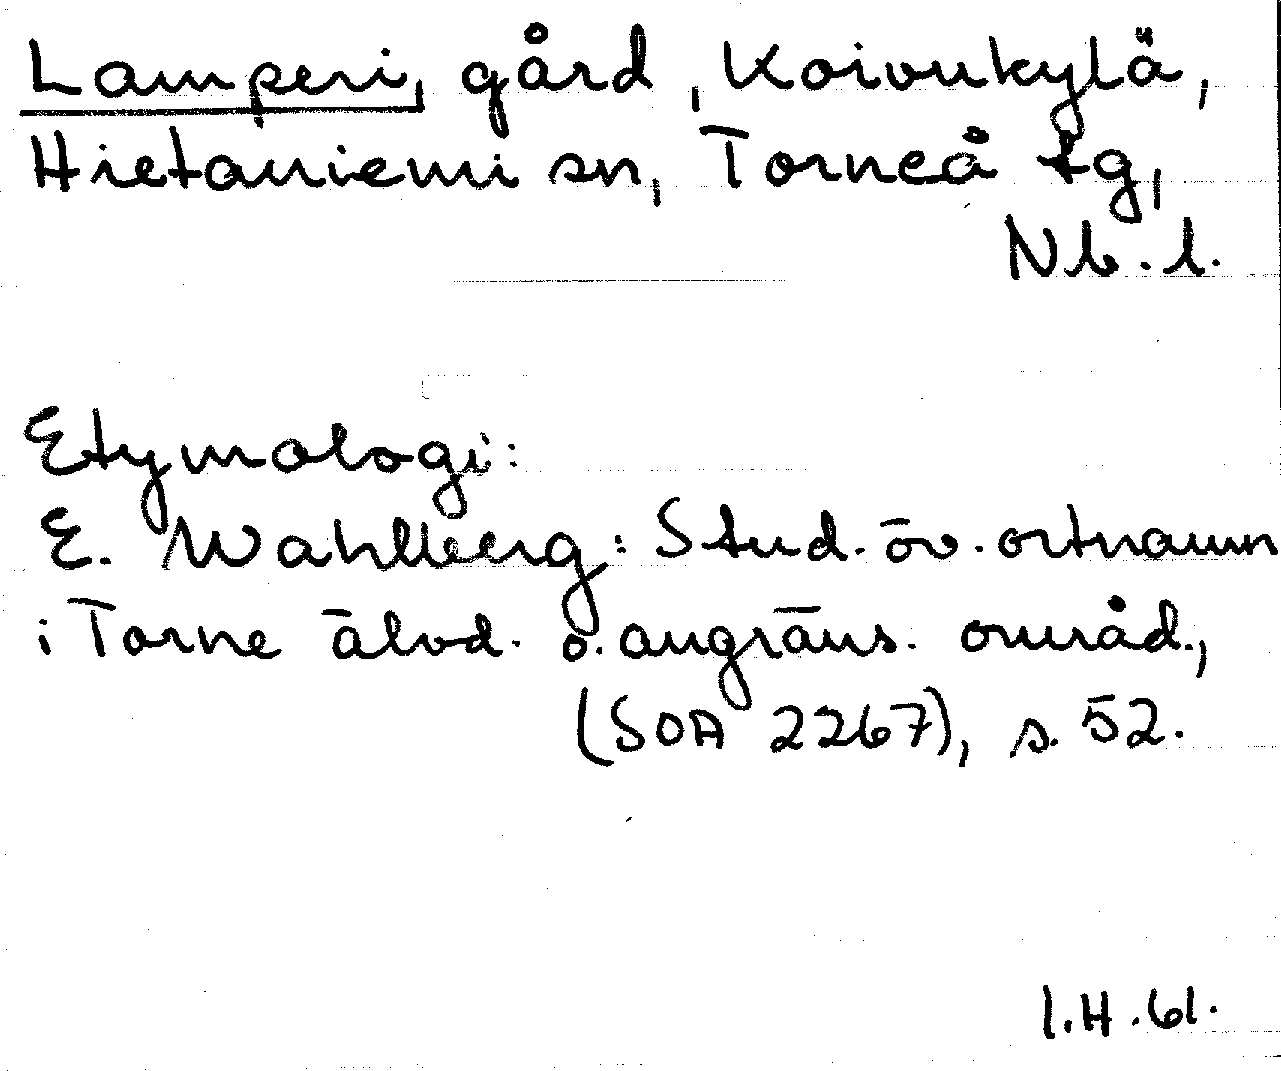 Lamperi, gård, Koivukylä,
Hietaniemi sn, Torneå tg,
Nb. l.
Etymologi:
E. Wahlberg: Stud. öv. ortnamn
i Torne älvd. o. angräns. områd.,
(SOA 2267), s. 52.
I.H. 61.